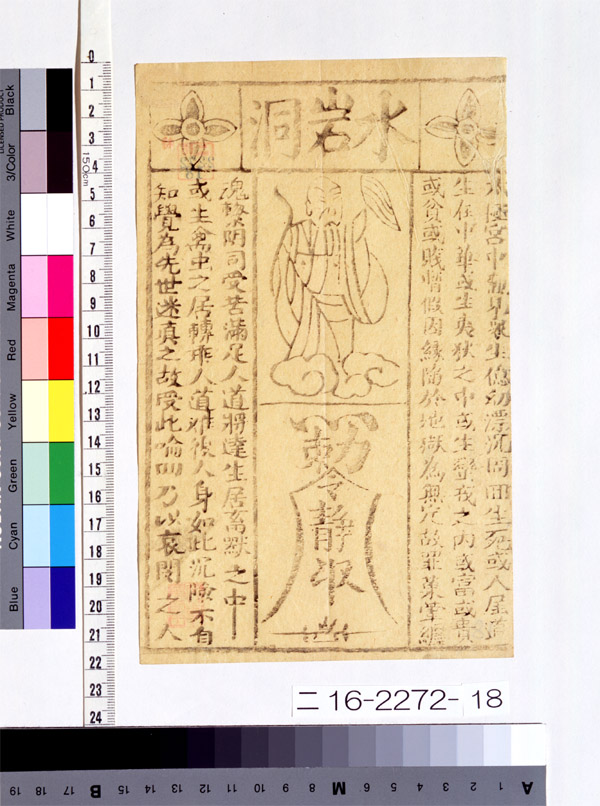 水岩洞
極宮中觀見眾生億劫漂沉周回生死或人居
生在中華或生夷狄之中或生蠻戎之内或富或貴
或貧或賤惜假因緣陷於地獄為無定故罪業牽纏
勅令靜收
魂繫阴司受苦滿足人道將違生居畜獸之中
或生禽虫之居轉乖人道难彼人身如此沉陰不自
知覺為先世迷真之故受此輪回乃以哀閔之人
二16-2272-18
0
1
2
3
4
5
6
7
8
9
10
11
12
13
14
15
16
17
18
19
20
21
22
23
24
150cm
LICENSED PRODUCT
Black
3/Color
White
Magenta
Red
Yellow
Green
Cyan
Blue
A 1 2 3 4 5 6 7 8 9 10 11 12 13 14 15 16 17 18 19
M
B